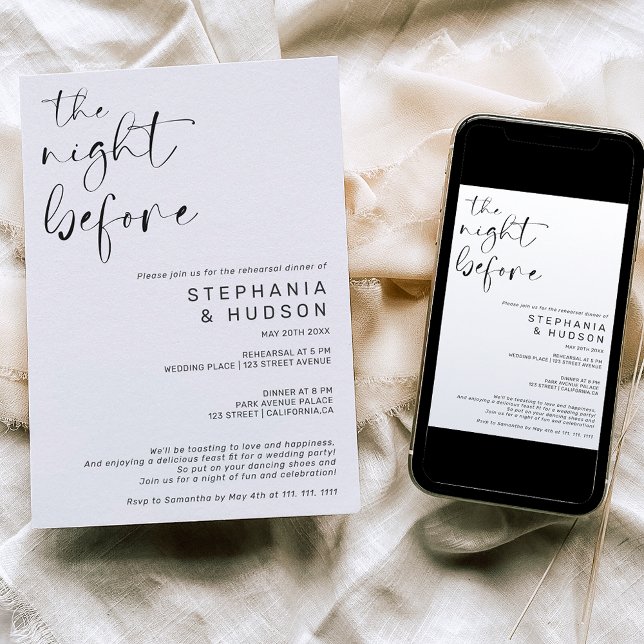 the
night
before
Please join us for the rehearsal dinner of
STEPHANIA
& HUDSON
MAY 20TH 20XX
REHEARSAL AT 5 PM
WEDDING PLACE | 123 STREET AVENUE
DINNER AT 8 PM
PARK AVENUE PALACE
123 STREET | CALIFORNIA,CA
We'll be toasting to love and happiness,
And enjoying a delicious feast fit for a wedding party!
So put on your dancing shoes and
Join us for a night of fun and celebration!
Rsvp to Samantha by May 4th at 111. 111. 1111
the
night
before
Please join us for the rehearsal dinner of
STEPHANIA
& HUDSON
MAY 20TH 20XX
REHEARSAL AT 5 PM
WEDDING PLACE | 123 STREET AVENUE
DINNER AT 8 PM
PARK AVENUE PALACE
123 STREET | CALIFORNIA,CA
We'll be toasting to love and happiness,
And enjoying a delicious feast fit for a wedding party!
So put on your dancing shoes and
Join us for a night of fun and celebration!
Rsvp to Samantha by May 4th at 111. 111. 1111